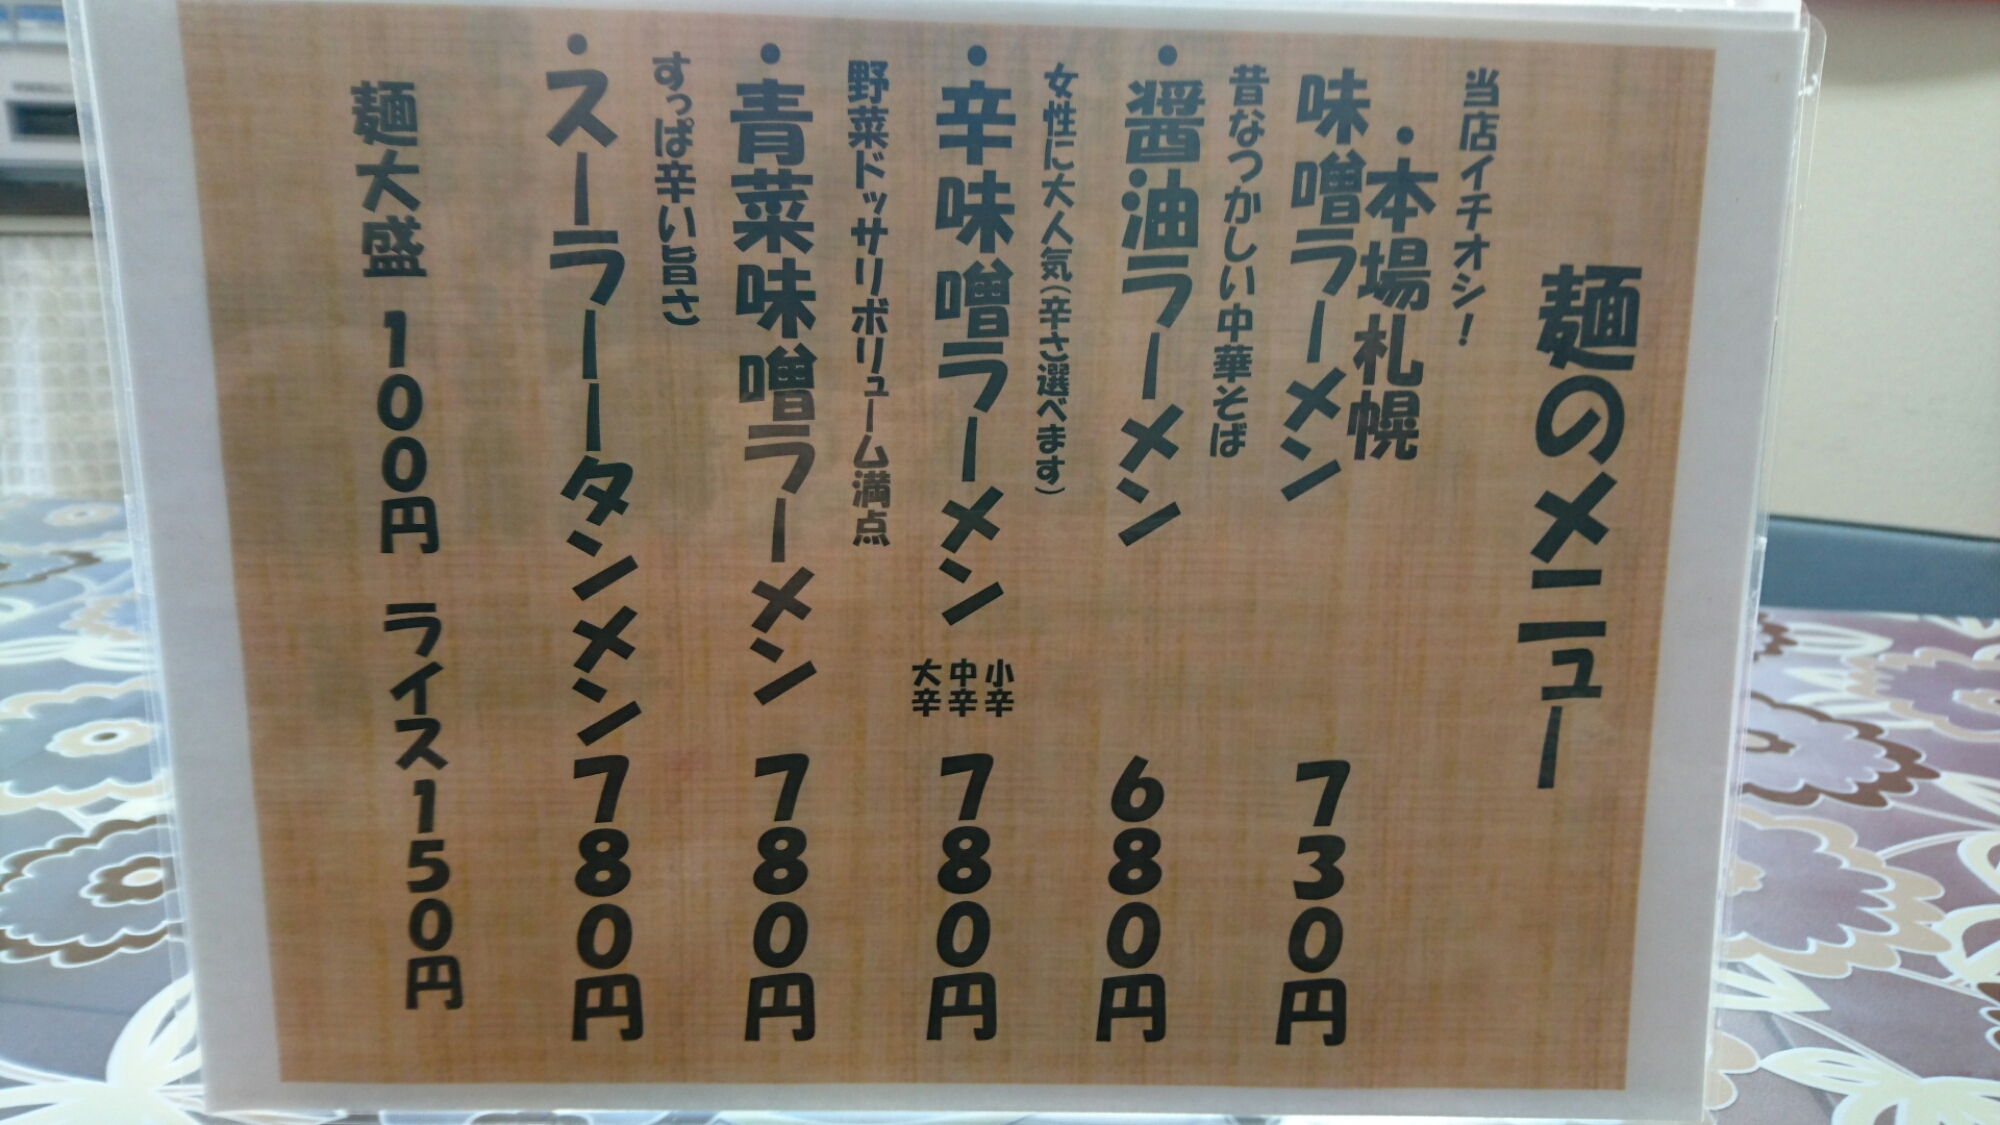 麺のメニュー
当店イチオシ!
・本場札幌
味噌ラーメン 730円
昔なつかしい中華そば
・醤油ラーメン 680円
女性に大人気(辛さ選べます)
・辛味噌ラーメン 小辛 中辛 大辛 780円
野菜ドッサリボリューム満点
・青菜味噌ラーメン 780円
すっぱ辛い旨さ
・スーラータンメン 780円
麺大盛 100円 ライス150円